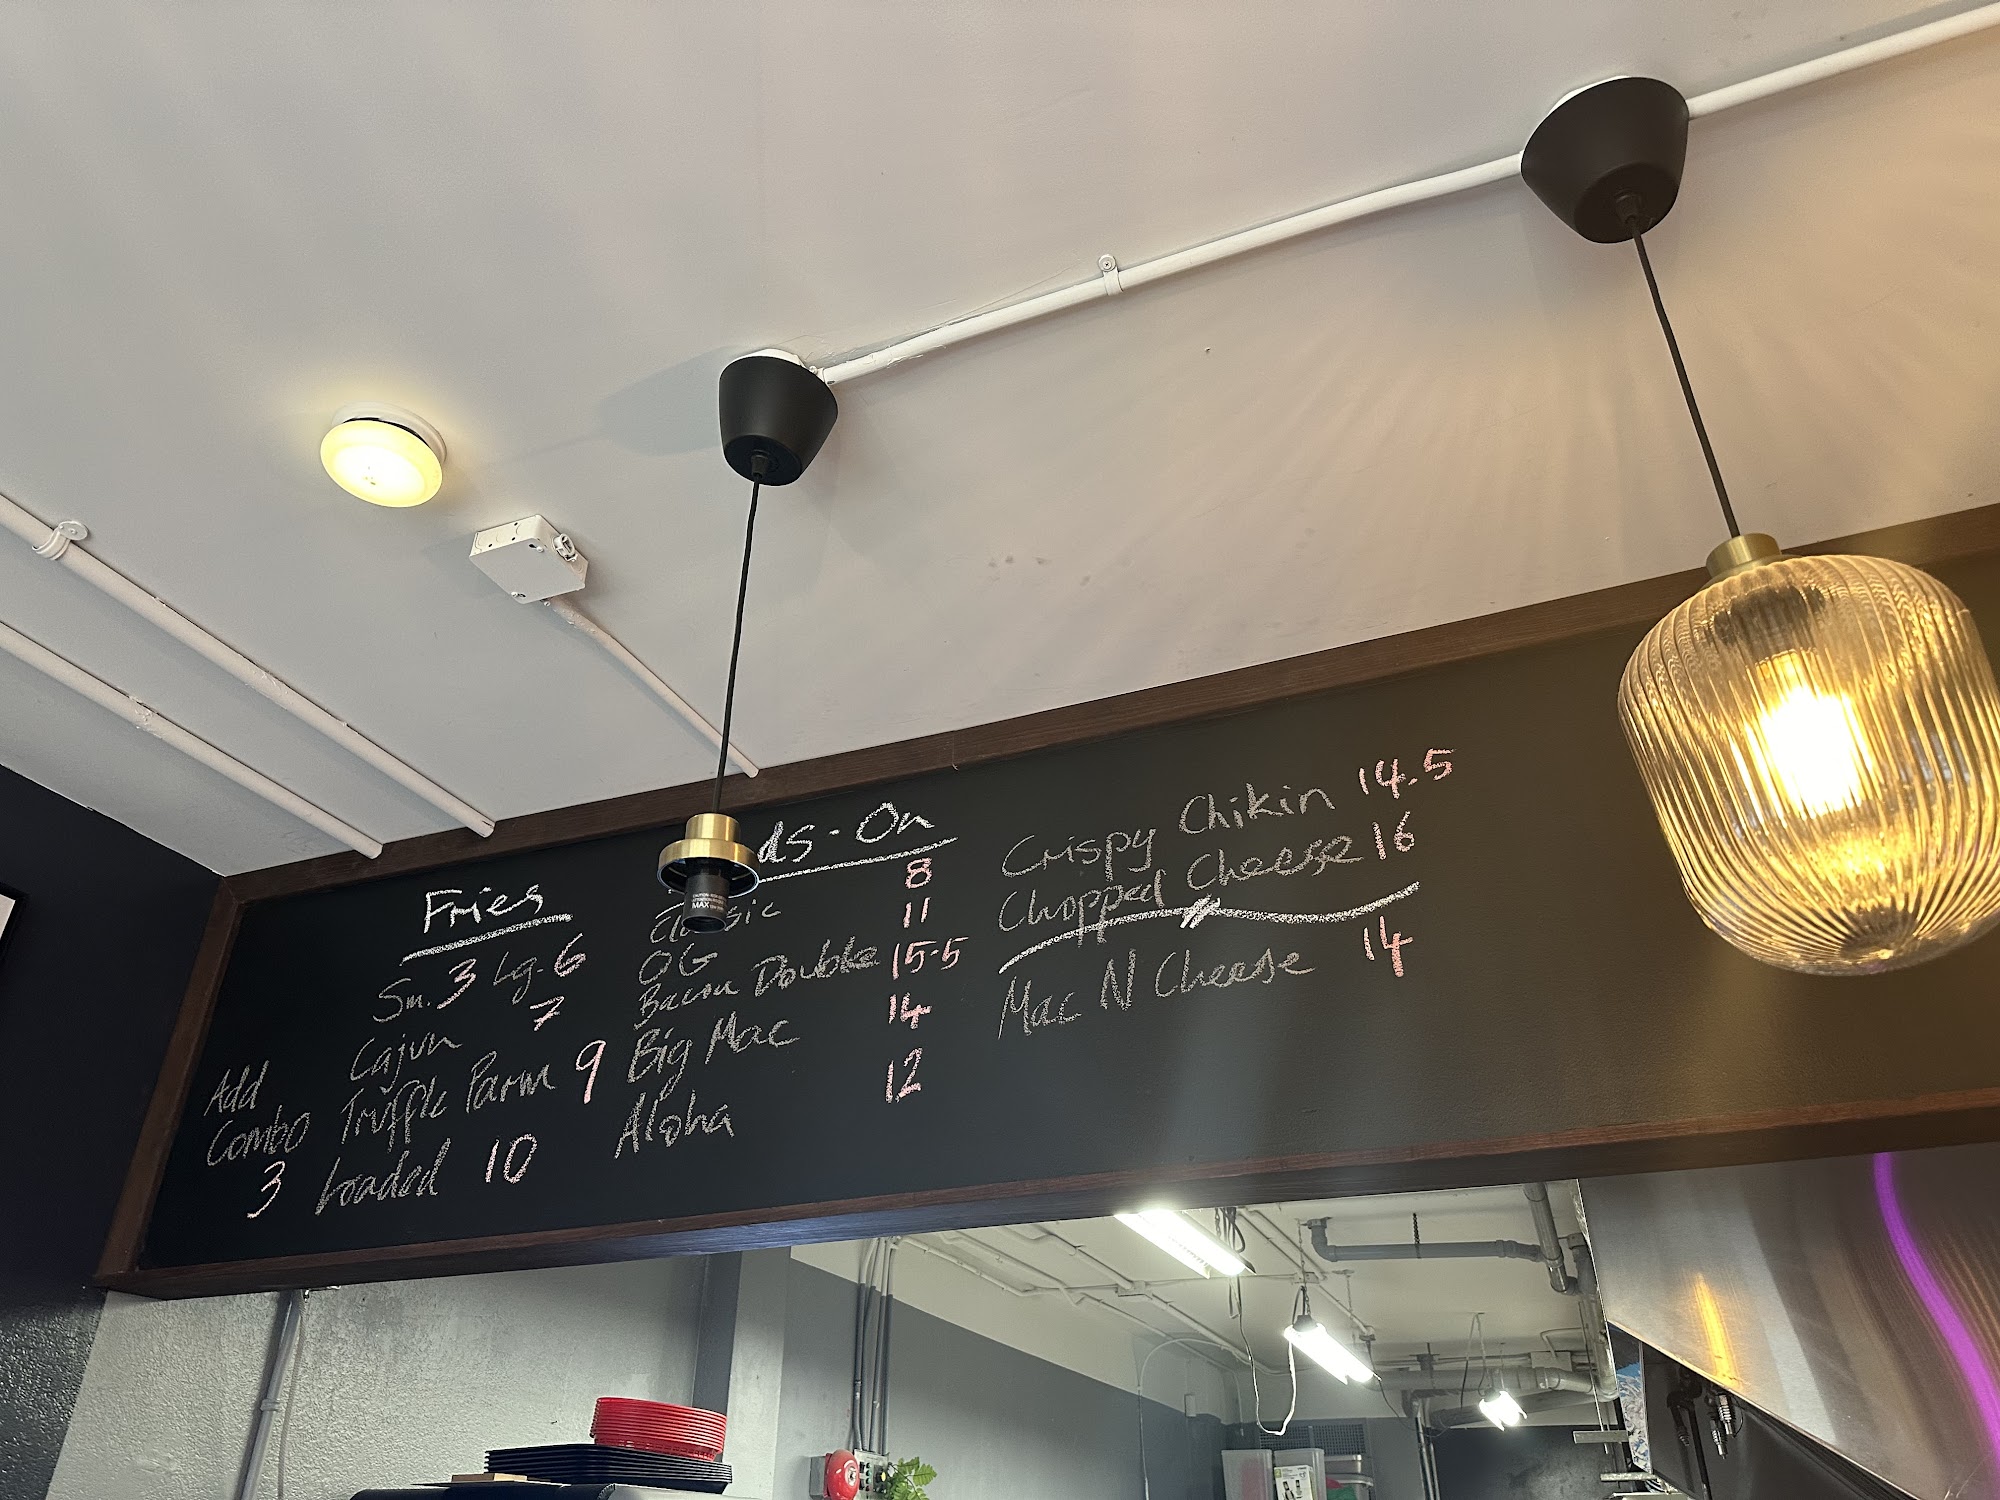 Fries
Sm. 3 Lg. 6
Cajun 7
Truffle Parm 9
Loaded 10
Add
Combo
3
ds-On
Classic 8
OG 11
Bacon Double 15.5
Big Mac 14
Aloha 12
Crispy Chikin 14.5
Chopped Cheese 16
Mac N Cheese 14
MAX